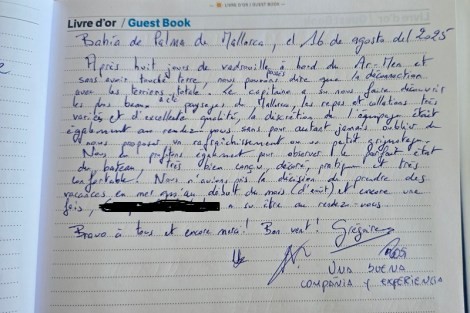 LIVRE D'OR / GUEST BOOK
Livre d'or / Guest Book
Bahía de Palma de Mallorca, el 16 de agosto del 2025
Après huit jours de vadrouille à bord du Ar-Men et
sans avoir touché terre, nous pouvons dire que la déconnection
avec les terriens totale. Le capitaine a su nous faire découvrir
les plus beaux paysages de Mallorca, les repas et collations très
variés et d'excellente qualité, la discrétion de l'équipage était
également au rendez-vous sans pour autant jamais oublier de
nous proposer un rafraîchissement ou un petit grignotage.
Nous en profitons également pour observer le parfait état
du bateau très bien conçu, décoré, pratique et très
confortable! Nous n'avions pas la décision de prendre des
vacances en mer au début du mois (d'août) et encore une
fois, a su être au rendez-vous.
Bravo à tous et encore merci! Bon vent! Grégoire
UNA BUENA
COMPAÑIA Y EXPERIENCIA